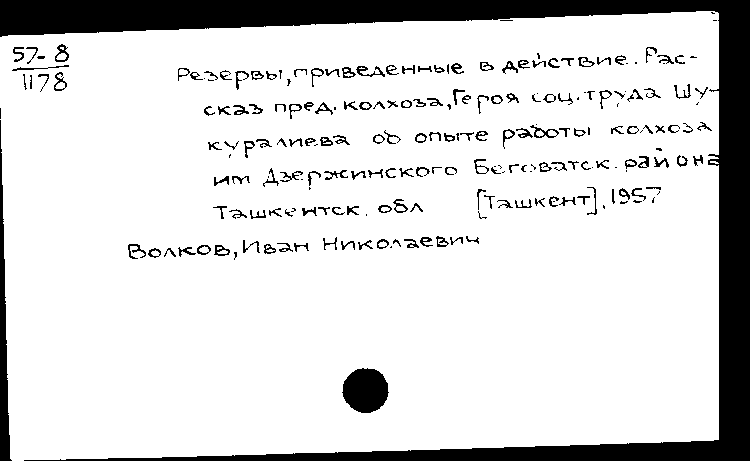 57-8
1178
Резервы, приведенные в действие. Рас-
сказ пред. колхоза, Героя соц. труда Шу-
куралиева об опыте работы колхоза
им Дзержинского Беговатск. района
Ташкентск. обл [Ташкент], 1957
Волков, Иван Николаевич